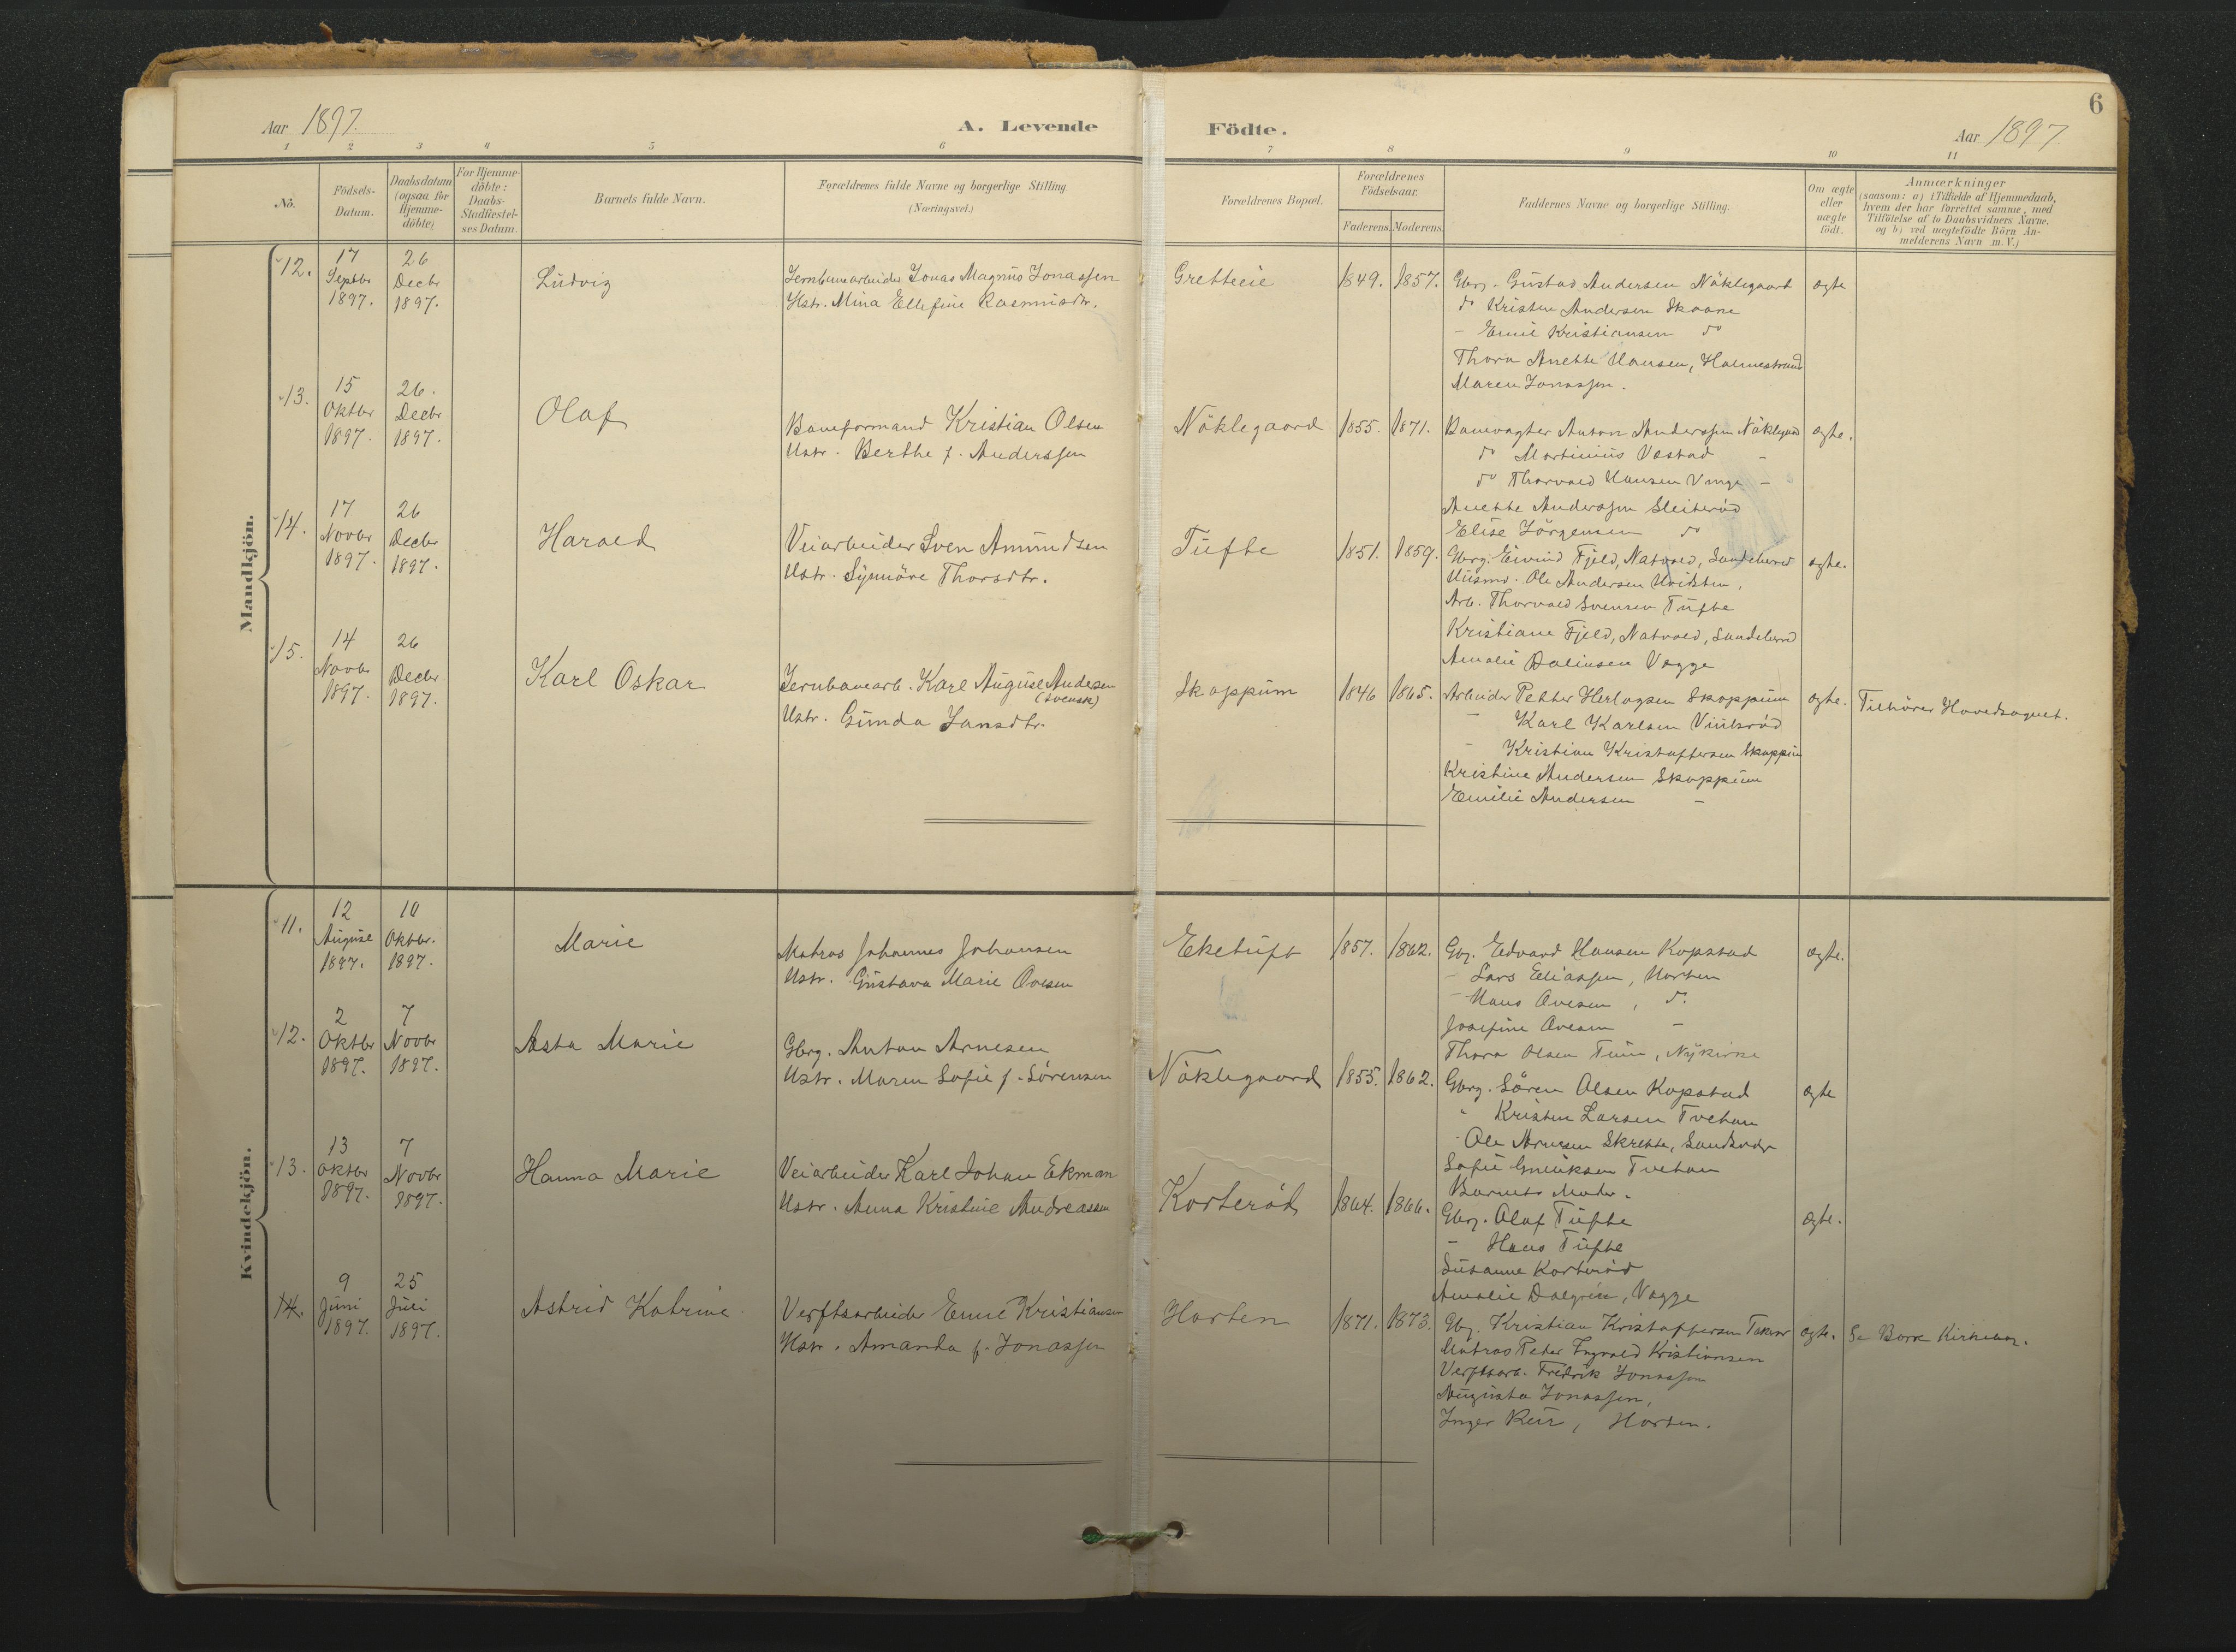 Aar 1897.
A. Levende
Födte.
Aar 1897.
6
1 2 3 4 5 6 7 8 9 10 11
No.
Födsels-
Datum.
Daabsdatum
(ogsaa for
Hjemme-
döbte)
For Hjemme-
döbte:
Daabs-
Stadfæstel-
ses Datum.
Barnets fulde Navn.
Forældrenes fulde Navne og borgerlige Stilling.
(Næringsvei.)
Forældrenes Bopæl.
Forældrenes
Födselsaar.
Faderens. Moderens.
Faddernes Navne og borgerlige Stilling.
Om ægte
eller
uægte
födt.
Anmærkninger
(saasom: a) i Tilfælde af Hjemmedaab,
hvem der har forrettet samme, med
Tilföielse af to Daabsvidners Navne.
og b) ved uægtefödte Börn An-
melderens Navn m. V.)
Mandkjön.
12.
17
Septbr
1897.
26
Decbr
1897.
Ludvig
Jernbanearbeider Jonas Magnus Jonassen
Hstr. Mina Ellefine Rasmusdtr.
Gretteeie
1849. 1857.
Gbrg. Gustav Andersen Nöklegaard
do Kristen Andersen Skaane
- Emil Kristiansen do
Thora Anette Hansen, Holmestrand
Maren Jonassen.
ægte
13.
15
Oktbr
1897.
26.
Decbr
1897.
Olaf
Baneformand Kristian Olsen
Hstr. Berthe f. Anderssen
Nöklegaard
1855. 1871.
Banevogter Anton Anderssen Nöklegaard
do Martinius Vestad -
do Thorvald Hansen Vinge -
Anette Anderssen Sleiteröd
Elise Jörgensen do
ægte.
14.
17
Novbr
1897.
26
Decbr
1897.
Harald
Veiarbeider Sven Amundsen
Hstr. Synnöve Thorsdtr.
Tufte
1851. 1859.
Gbrg. Eivind Fjeld, Natvald, Sandeherred
Husmd. Ole Andersen
Arb. Thorvald Svensen Tufte
Kristiane Fjeld, Natvald, Sandeherred
Amalie Dalinsen Vegge
ægte.
15.
14
Novbr
1897.
26
Decbr
1897.
Karl Oskar
Jernbanearb. Karl August Andersen
(svensk)
Hstr. Gunda Jansdtr.
Skoppum
1846 1865.
Arbeider Petter Herlogsen Skoppum
- Karl Karlsen Viulsröd
- Kristian Kristoffersen Skoppum
Kristine Andersen Skoppum
Emilie Andersen -
ægte.
Tilhörer Hovedsognet.
Kvindekjön.
11.
12
August
1897.
10
Oktbr.
1897.
Marie
Matros Johannes Johansen
Hstr. Gustava Marie Ovesen
Eketuft
1857. 1862.
Gbg. Edvard Hansen Kopstad
- Lars Eliassen, Horten
- Hans Ovesen, do.
Josefine Ovesen -
Thora Olsen Tuun, Nykirke
ægte.
12.
2
Oktbr
1897.
7
Novbr
1897.
Asta Marie
Gbrg. Anton Arnesen
Hstr. Maren Sofie f. Sörensen
Nöklegaard
1855. 1862.
Gbrg. Sören Olsen Kopstad
" Kristen Larsen Tvetan
- Ole Arnesen Skrette, Sandsvær
Sofie Tvetan
Barnets Moder.
ægte
13.
13
Oktbr
1897.
7
Novbr
1897.
Hanna Marie
Veiarbeider Karl Johan Ekman
Hstr. Anna Kristine Andreassen
Korteröd
1864. 1866.
Gbrg. Olaf Tufte
- Hans Tufte
Susanne Korteröd
Amalie Dalgren, Vegge
ægte.
14.
9
Juni
1897.
25
Juli
1897.
Astrid Katrine
Verftsarbeider Emil Kristiansen
Hstr. Amanda f. Jonassen
Horten
1871. 1873.
Gbg. Kristian Kristoffersen
Matros Peter Ingvald Kristiansen
Verftsarb. Fredrik Jonassen
Augusta Jonassen,
Inger, Horten.
ægte.
Se Borre Kirkebog.